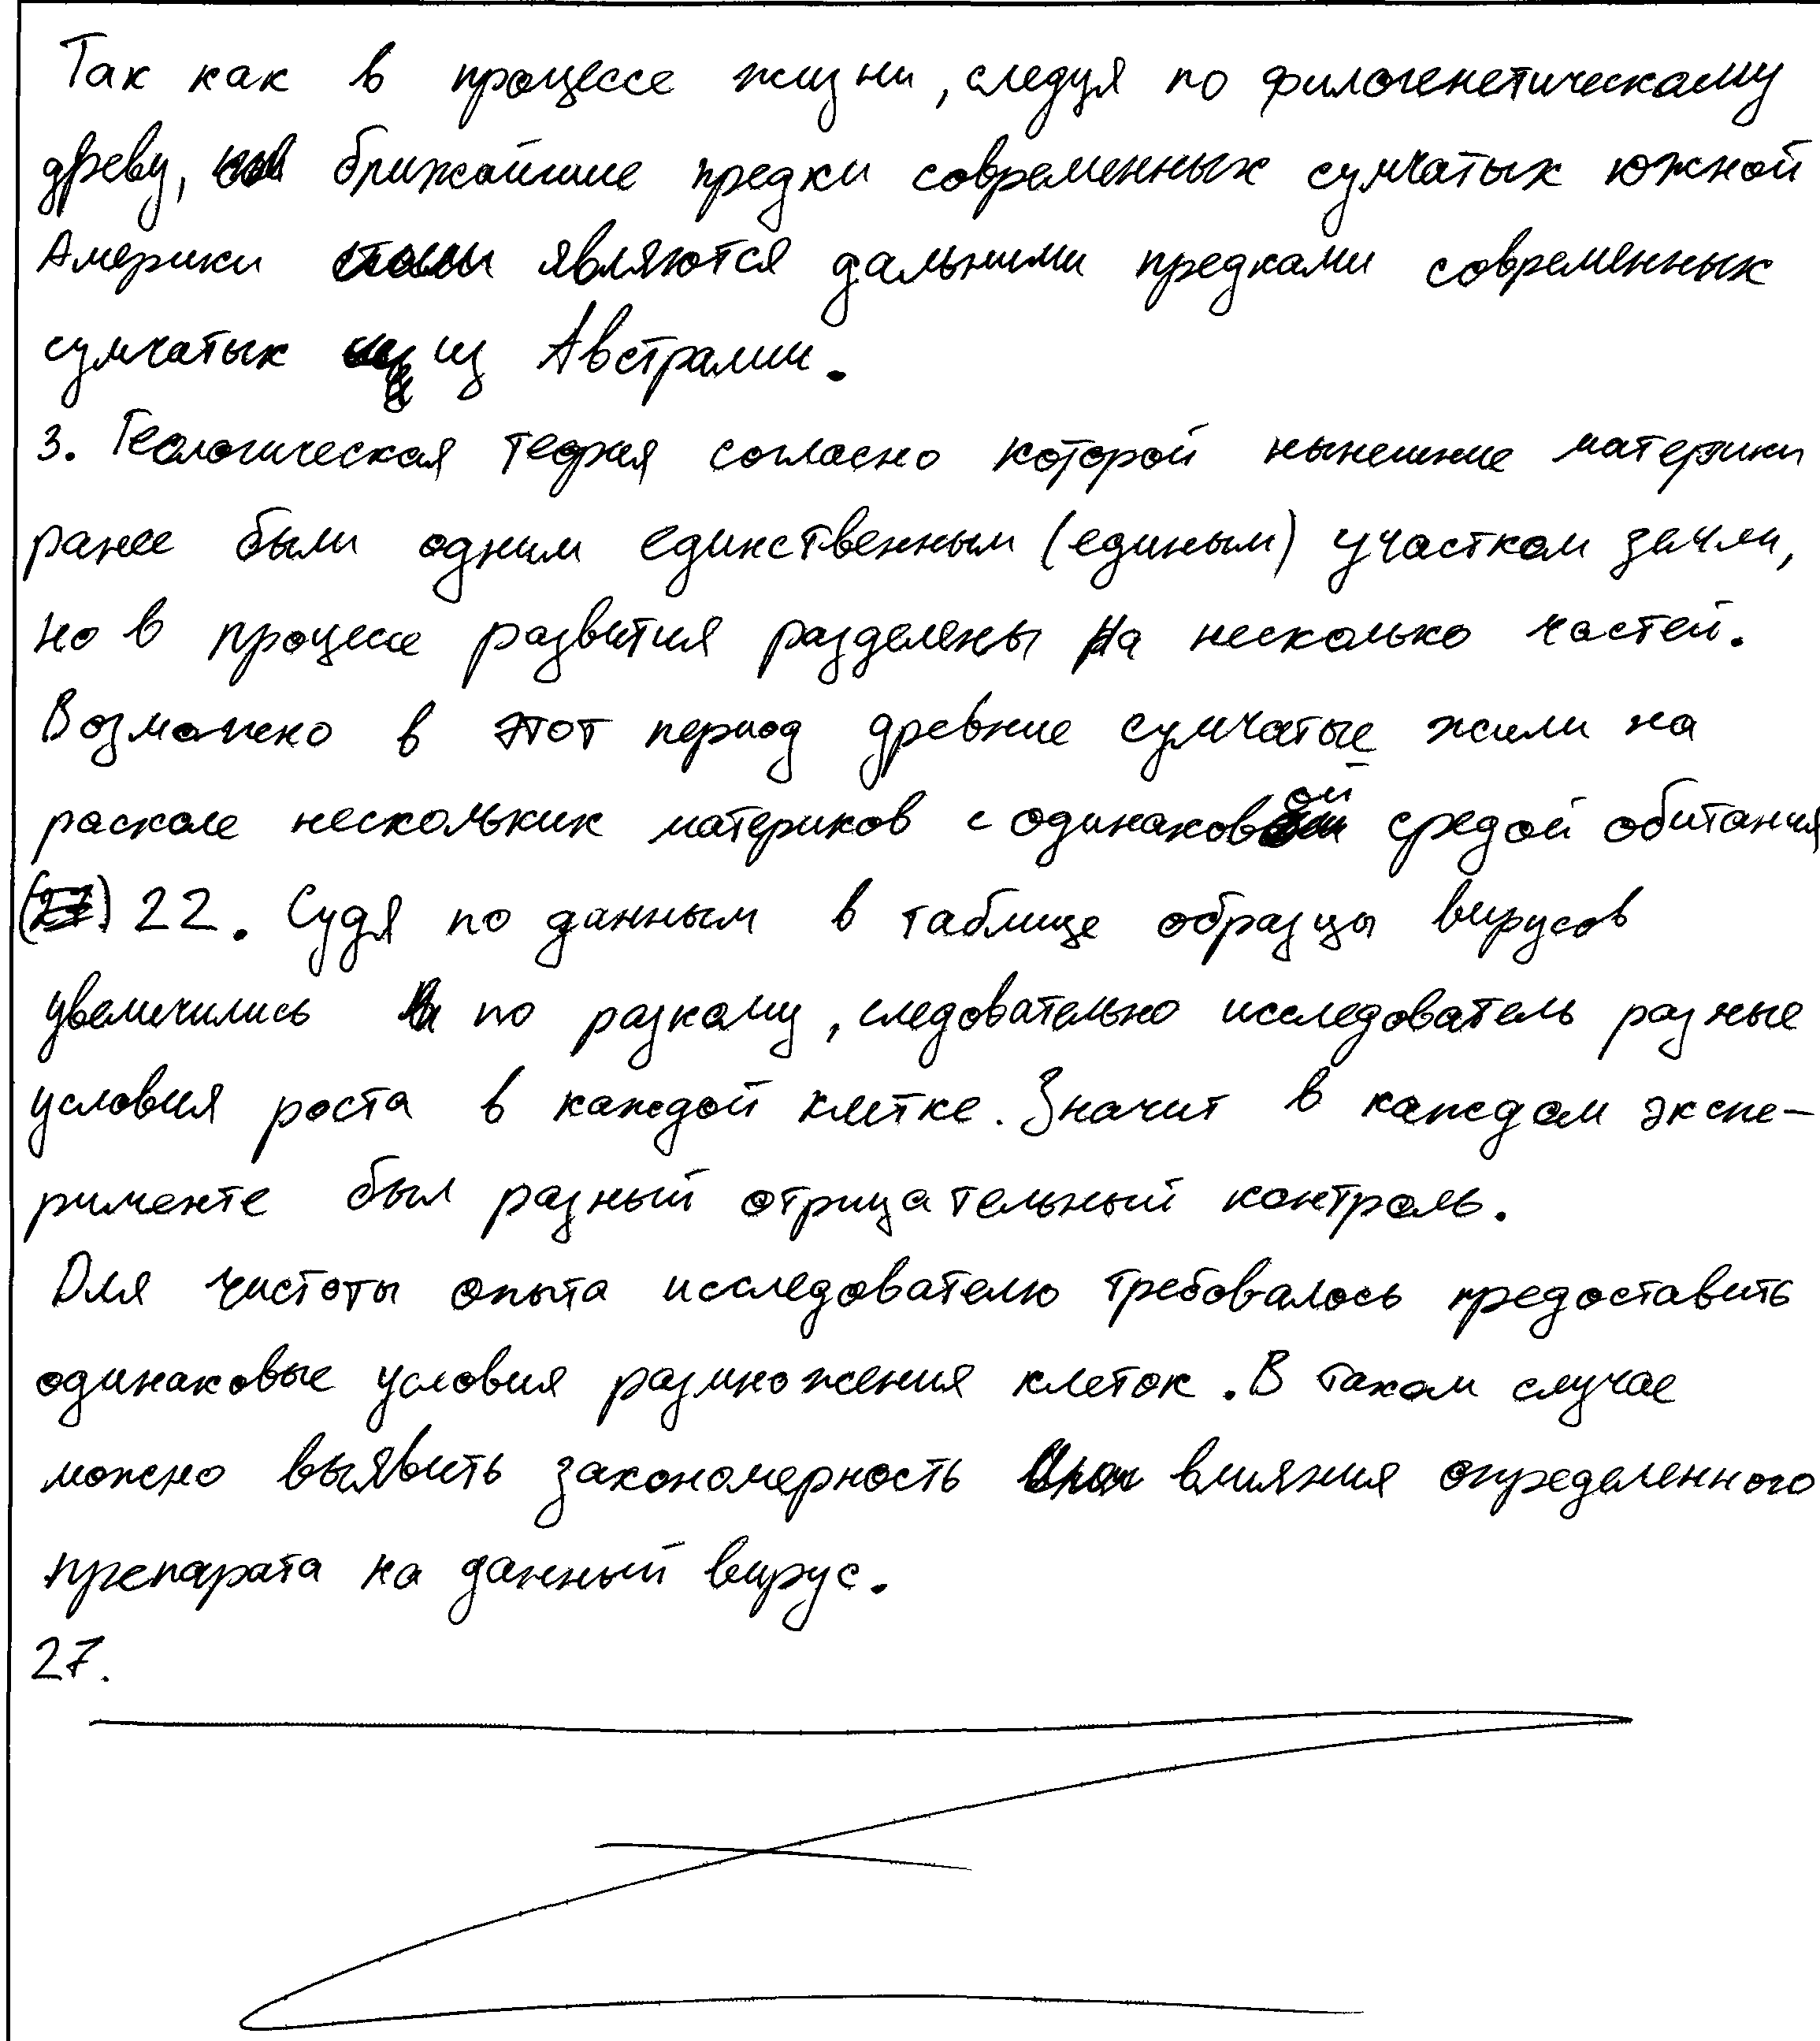 Так как в процессе жизни, следуя по филогенетическому
древу, ближайшие предки современных сумчатых южной
Америки являются дальними предками современных
сумчатых из Австралии.
3. Геологическая теория согласно которой нынешние материки
ранее были одним единственным (единым) участком земли,
но в процессе развития разделены на несколько частей.
Возможно в этот период древние сумчатые жили на
расколе нескольких материков с одинаковой средой обитания
(27) 22. Судя по данным в таблице образцы вирусов
увеличились по разному, следовательно исследователь разные
условия роста в каждой клетке. Значит в каждом экспе-
рименте был разный отрицательный контроль.
Для чистоты опыта исследователю требовалось предоставить
одинаковые условия размножения клеток. В таком случае
можно выявить закономерность влияния определенного
препарата на данный вирус.
27.